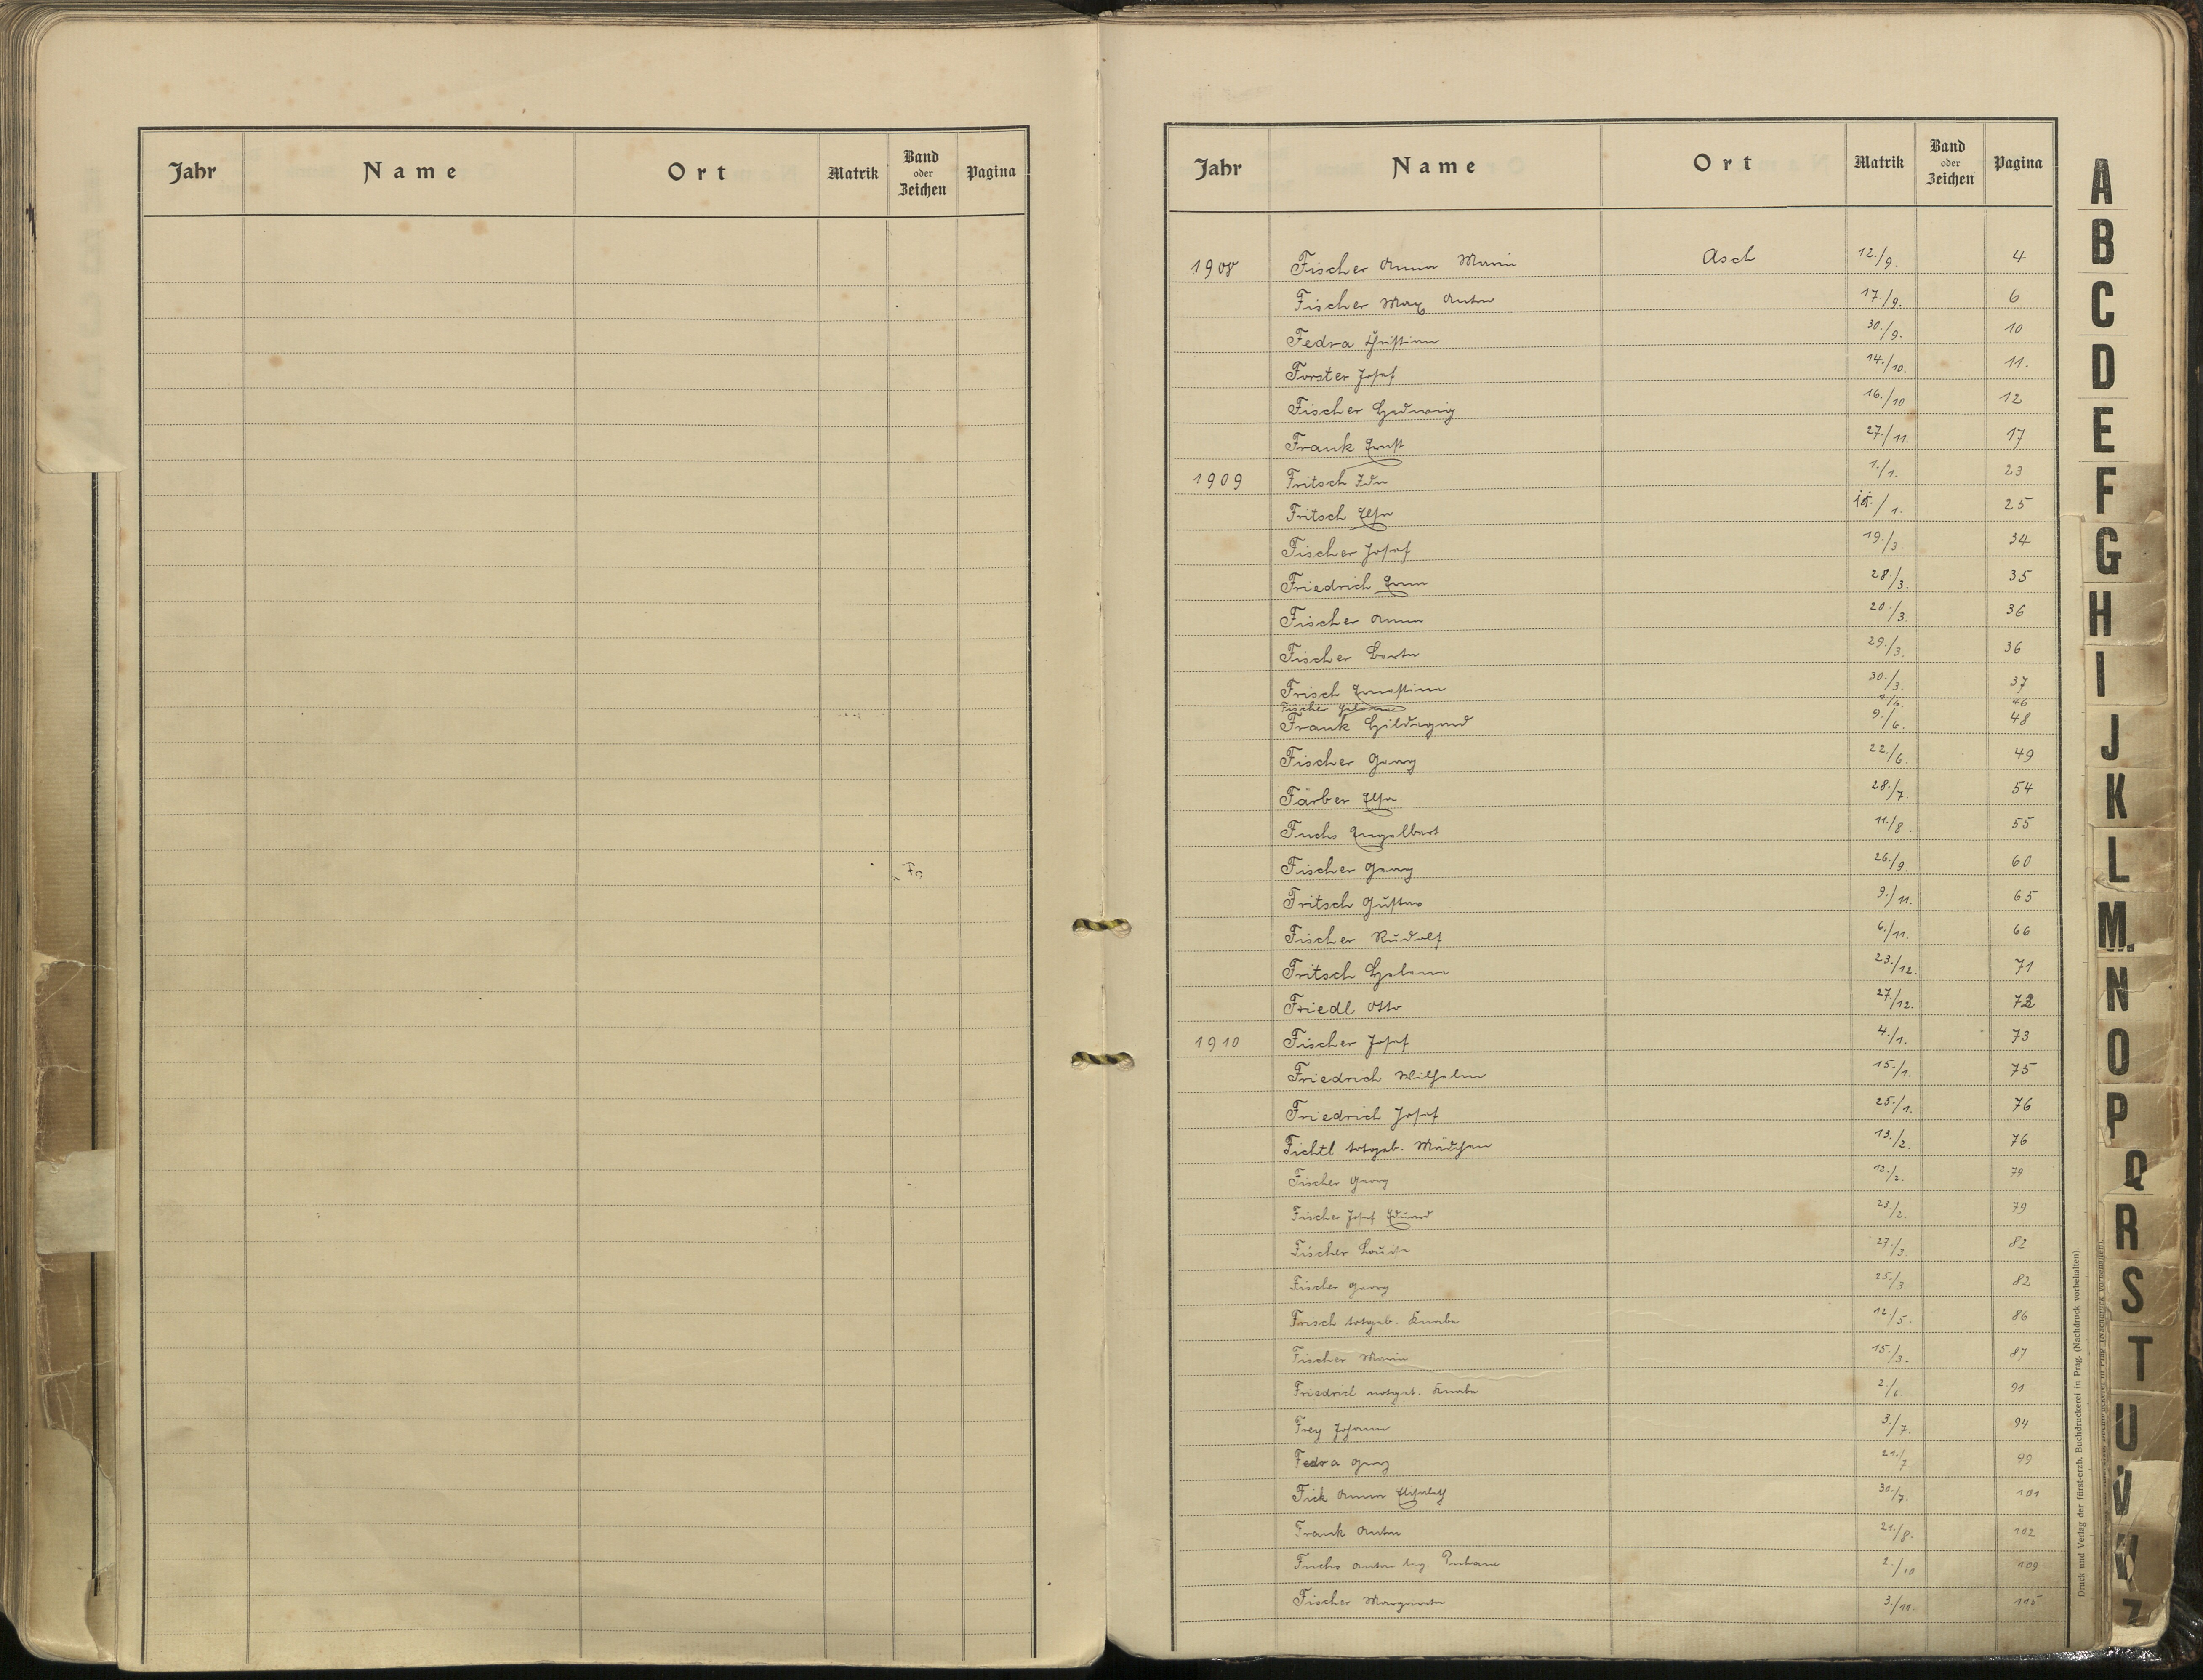 Jahr Name Ort Matrik Band oder Zeichen Pagina
Jahr Name Ort Matrik Band oder Zeichen Pagina
1908 Fischer Anna Marie Asch 12./9. 4
Fischer Max Anton 17./9. 6
Fedra Christian 30./9. 10
Forster Josef 14./10. 11.
Fischer Hedwig 16./10 12
Frank Ernst 27./11. 17
1909 Fritsch Ida 1./1. 23
Fritsch Elsa /1. 25
Fischer Josef 19./3. 34
Friedrich Erna 28/3. 35
Fischer Anna 20./3. 36
Fischer Berta 29./3. 36
Frisch Ernestine 30./3. 37
Fischer 46
Frank Hildegard 9./6. 48
Fischer Georg 22./6. 49
Färber Elsa 28./7. 54
Fuchs Engelbert 11./8. 55
Fischer Georg 26./9. 60
Fritsch Gustav 9./11. 65
Fischer Rudolf 6./11. 66
Fritsch Helene 23./12. 71
Friedl Otto 27./12. 72
1910 Fischer Josef 4./1. 73
Friedrich Wilhelm 15./1. 75
Friedrich Josef 25./1. 76
Fichtl totgeb. Mädchen 13./2. 76
Fischer Georg 12./2. 79
Fischer Josef Eduard 23/2. 79
Fischer Louise 27./3. 82
Fischer Georg 25./3. 82
Frisch totgeb. Knabe 12/5. 86
Fischer Marie 15./3. 87
Friedrich notget. Knabe 2./6. 91
Frey Johann 3./7. 94
Fedra Georg 21./7 99
Fick Anna Elisabeth 30./7. 101
Frank Anton 21./8. 102
Fuchs Anton leg. 2./10 109
Fischer Margareta 3/11. 115
A
B
C
D
E
F
G
H
I
J
K
L
M.
N
O
P
Q
R
S
T
U
V
W
Z
Druck und Verlag der fürst-erzb. Buchdruckerei in Prag. (Nachdruck vorbehalten).